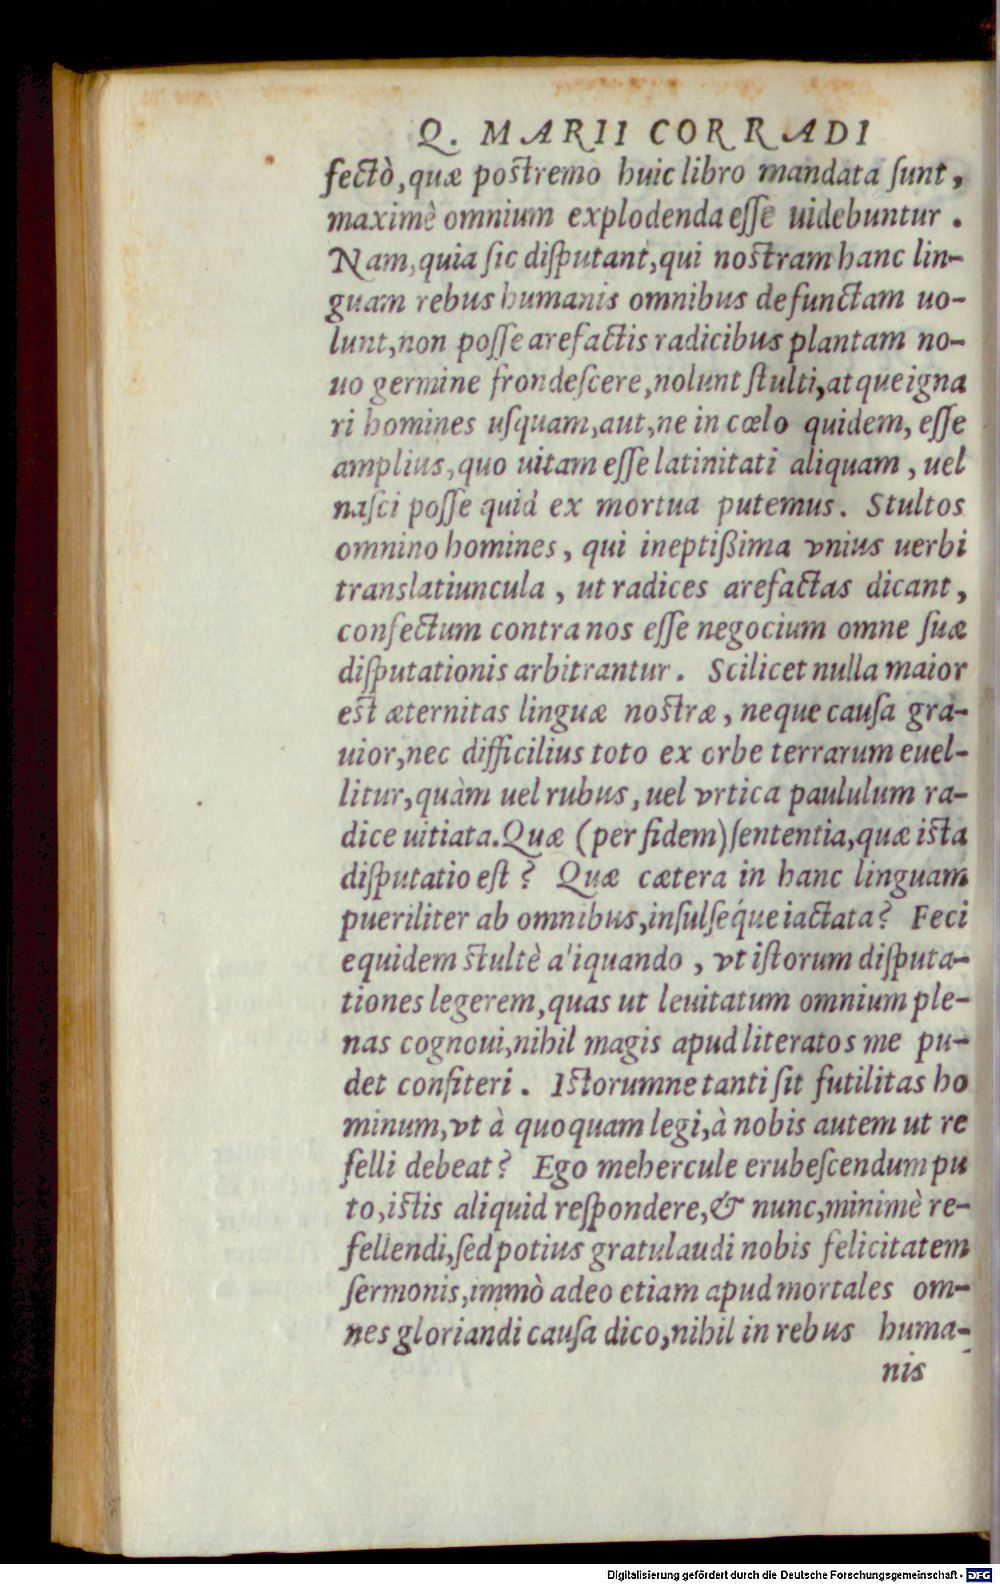 Q. MARII CORRADI
fectò, quæ postremo huic libro mandata sunt,
maximè omnium explodenda esse uidebuntur.
Nam, quia sic disputant, qui nostram hanc lin-
guam rebus humanis omnibus defunctam uo-
lunt, non posse arefactis radicibus plantam no-
uo germine frondescere, nolunt stulti, atque igna
ri homines usquam, aut, ne in cœlo quidem, esse
amplius, quo uitam esse latinitati aliquam, uel
nasci posse quid ex mortua putemus. Stultos
omnino homines, qui ineptißima vnius uerbi
translatiuncula, ut radices arefactas dicant,
confectum contra nos esse negocium omne suæ
disputationis arbitrantur. Scilicet nulla maior
est æternitas linguæ nostræ, neque causa gra-
uior, nec difficilius toto ex orbe terrarum euel-
litur, quàm uel rubus, uel vrtica paululum ra-
dice uitiata. Quæ (per fidem) sententia, quæ ista
disputatio est? Quæ cætera in hanc linguam
pueriliter ab omnibus, insulseq́ue iactata? Feci
equidem stultè aliquando, vt istorum disputa-
tiones legerem, quas ut leuitatum omnium ple-
nas cognoui, nihil magis apud literatos me pu-
det confiteri. Istorumne tanti sit futilitas ho
minum, vt à quoquam legi, à nobis autem ut re
felli debeat? Ego mehercule erubescendum pu
to, istis aliquid respondere, & nunc, minimè re-
fellendi, sed potius gratulaudi nobis felicitatem
sermonis, immò adeo etiam apud mortales om-
nes gloriandi causa dico, nihil in rebus huma-
nis
Digitalisierung gefördert durch die Deutsche Forschungsgemeinschaft - DFG